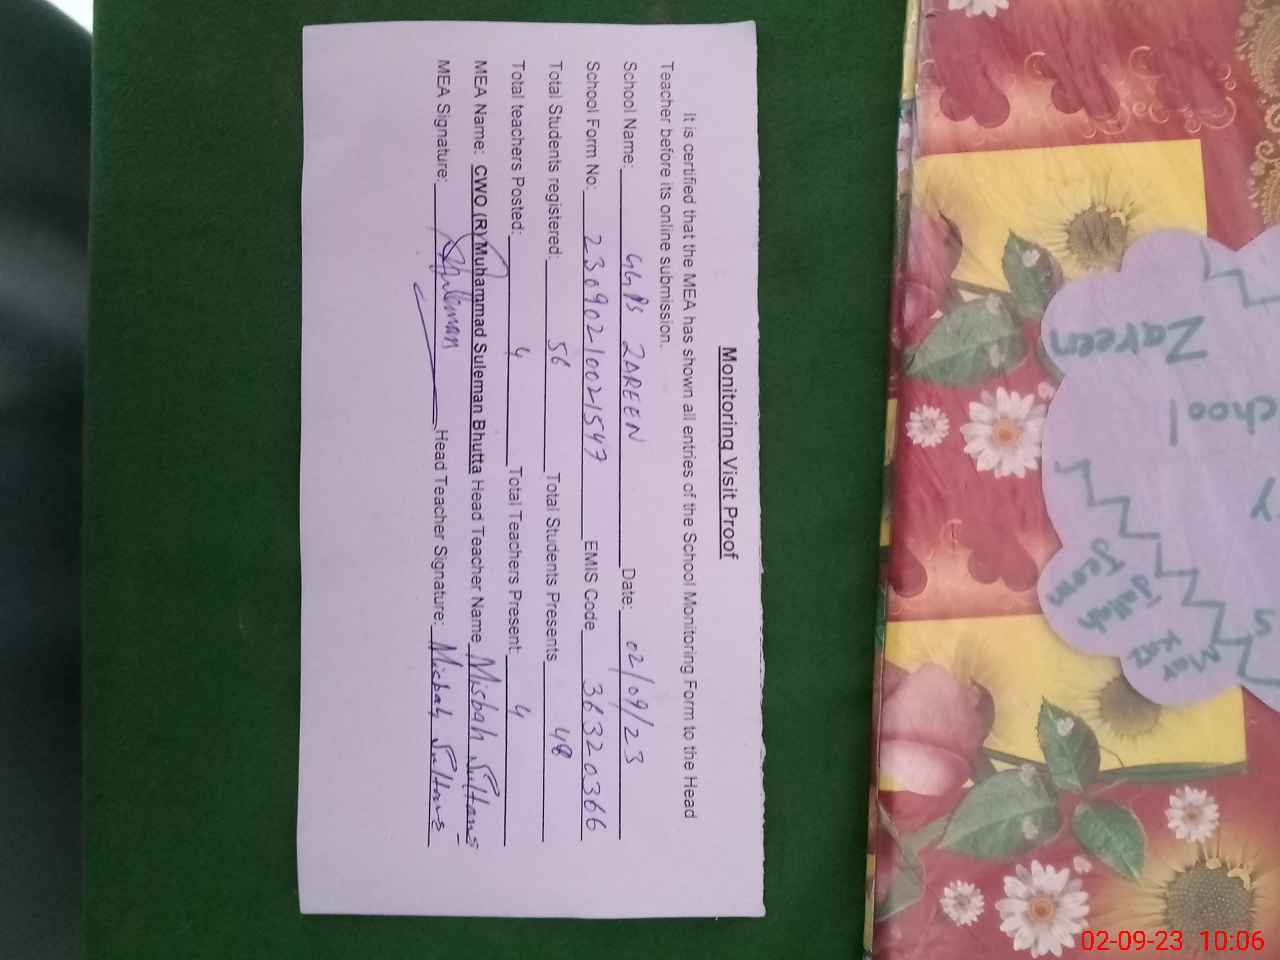 Monitoring Visit Proof
It is certified that the MEA has shown all entries of the School Monitoring Form to the Head
Teacher before its online submission.
School Name: GGPS ZAREEN Date: 02/09/23
School Form No: 23090210021547 EMIS Code 36320366
Total Students registered: 56 Total Students Presents 48
Total teachers Posted: 4 Total Teachers Present: 4
MEA Name: CWO (R) Muhammad Suleman Bhutta Head Teacher Name Misbah Sultana
MEA Signature: Suleman Head Teacher Signature: Misbah Sultana
Zareen
chool
Y
S
02-09-23 10:06